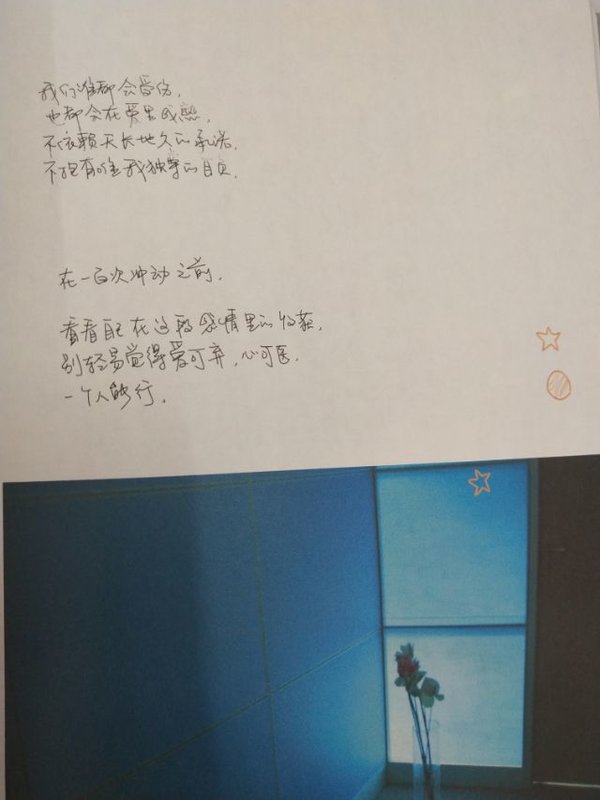 我们谁都会受伤，
也都会在爱里成熟，
不依賴天长地久的承诺，
不抱有唯我独尊的自负，
在一百次冲动之前，
看看自己在这段感情里的收获，
别轻易觉得爱可弃，心可医，
一个人能行，